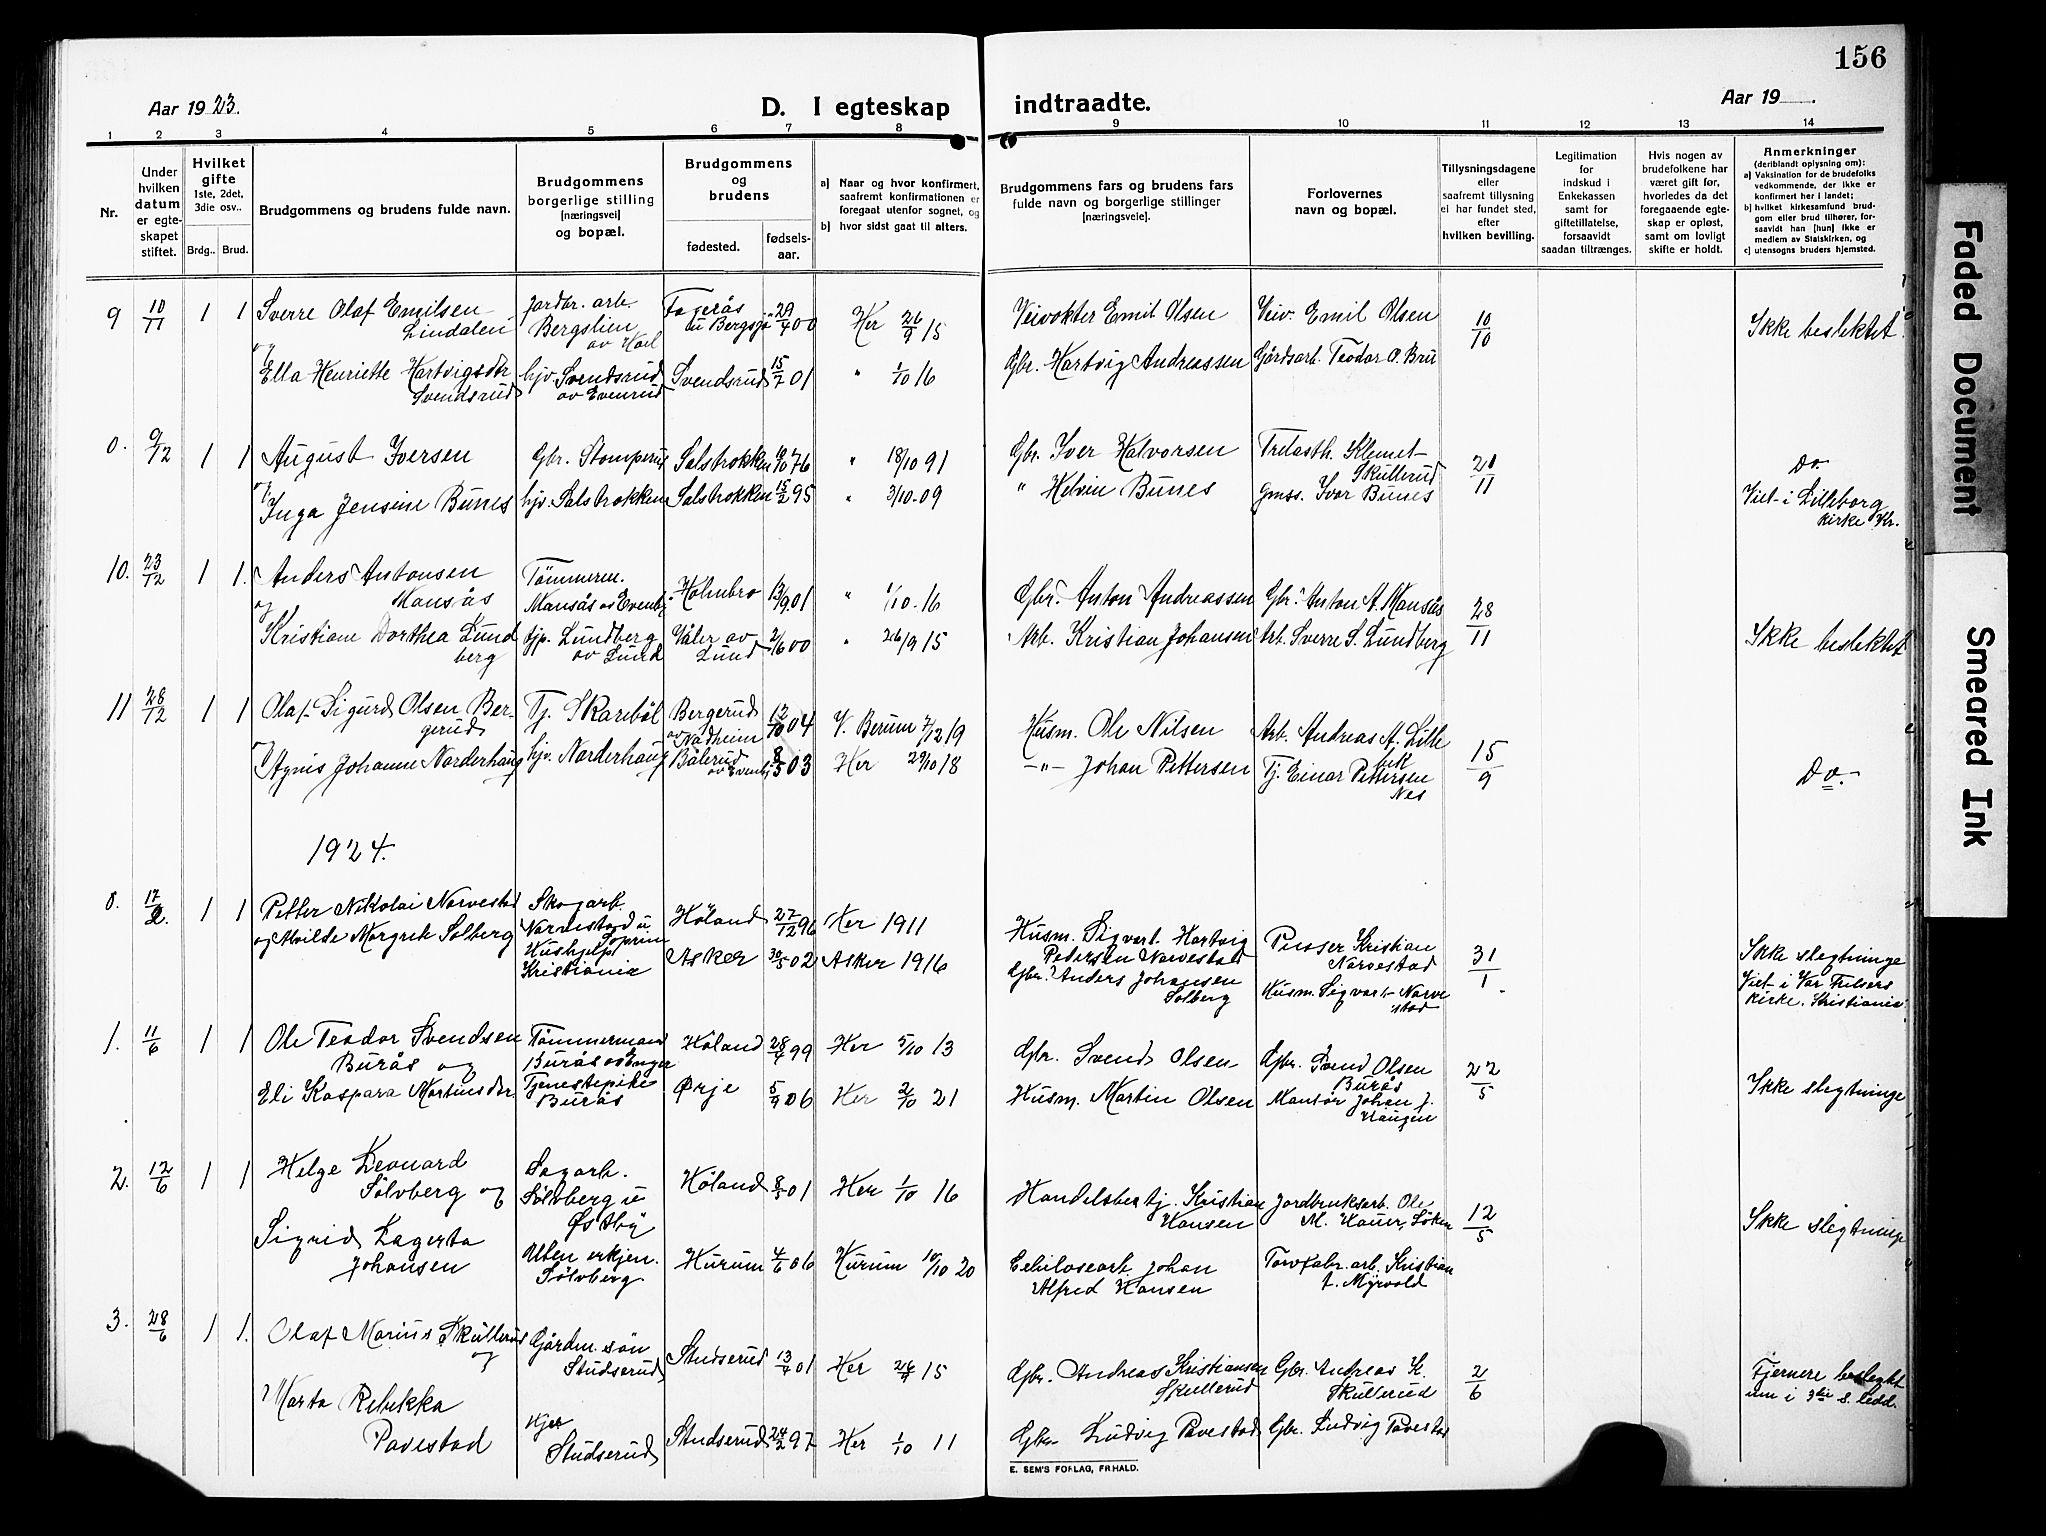 156
Aar 1923.
D. I egteskap
indtraadte.
Aar 19 .
1 2 3 4 5 6 7 8 9 10 11 12 13 14
Nr.
Under hvilken datum er egte-skapet stiftet.
Hvilket gifte 1ste, 2det, 3die osv..
Brdg.. Brud.
Brudgommens og brudens fulde navn.
Brudgommens borgerlige stilling [næringsvei] og bopæl.
Brudgommens og brudens
fødested. fødsels-aar.
a) Naar og hvor konfirmert, saafremt konfirmationen er foregaat utenfor sognet, og
b) hvor sidst gaat til alters.
Brudgommens fars og brudens fars fulde navn og borgerlige stillinger [næringsveie].
Forlovernes navn og bopæl.
Tillysningsdagene eller saafremt tillysning ei har fundet sted, efter hvilken bevilling.
Legitimation for indskud i Enkekassen samt for giftetillatelse, forsaavidt saadan tiltrænges.
Hvis nogen av brudefolkene har været gift før, hvorledes da det foregaaende egte-skap er opløst, samt om lovligt skifte er holdt.
Anmerkninger (deriblandt oplysning om):
a) Vaksination for de brudefolks vedkommende, der ikke er konfirmert her i landet;
b) hvilket kirkesamfund brud-gom eller brud tilhører, for-saavidt han [hun] ikke er medlem av Statskirken, og
c) utensogns bruders hjemsted.
9 10/11 1 1 Sverre Olaf Emilsen Lindalen Jordbr. arb. Bergslien Fagerås 29/4 00 Her 26/9 15 Veivokter Emil Olsen Veiv. Emil Olsen 10/10 Ikke beslektet.
og Ella Henriette Hartvigsdtr Svendsrud hjv. Svendsrud av Evenrud Svendsrud 15/7 01 " 1/10 16 Gbr. Hartvig Andreassen Gårdsarb. Teodor O. Bru
0. 9/12 1 1 August Iversen Gbr. Stomperud Salstrokken 10/10 76 " 18/10 91 Gbr. Iver Halvorsen Trelasth. Klemet Skullerud 20/11 Do.
og Inga Jensine Bunes hjv. Salstrokken Salstrokken 15/2 95 " 3/10-09 " Helvin Bunes Gmss. Ivar Bunes Viet i Lilleborg kirke Kr.
10. 23/12 1 1. Anders Antonsen Mansås Tømmerm. Mansås Holmbro 13/9 01 " 1/10-16 Gbr. Anton Andreassen Gbr. Anton A. Mansås 28/11
og Kristiane Dorthea Lundberg tjp. Lundberg av Lund Våler av Lund 2/6 00 " 26/9 15 Arb. Kristian Johansen Arb. Sverre S. Lundberg Ikke beslektet
11 28/12 1 1 Olaf Sigurd Olsen Bergerud Tj. Skaribøl Bergerud 12/10 04 V. Berum 7/12 19 Husm. Ole Nilsen Arb. Andreas A. Lillebek 15/9
og Agnes Johanne Norderhaug hjv. Norderhaug Bålerud 8/5 03 Her 29/10 18 -"- Johan Pettersen Tj. Einar Pettersen Nes Do.
1924.
0. 17/2. 1 1 Petter Nikolai Narvestad Skogarb. Narvestad u. Høland 27/12 96 Her 1911 Husm. Sigvart Hartvig Pedersen Narvestad Kristian Narvestad 31/1
og Alvilde Margrete Solberg Hushjelp Kristiania Asker 30/5 02 Asker 1916 Gbr. Anders Johansen Solberg Husm. Sigvart Narvestad Ikke slegtninge Viet i Vor Frelsers kirke. Kristiania.
1. 11/6 1 1 Ole Teodor Svendsen Burås og Tømmermand Burås Høland 28/4 99 Her 5/10 13 Gbr. Svend Olsen Gbr. Svend Olsen Burås 22/5
Eli Kaspara Martinsdtr. Tjenestepike Burås Ørje 5/9 06 Her 2/10 21 Husm. Martin Olsen Johan J. Haugen Ikke slegtninge
2. 12/6 1 1 Helge Leonard Sølvberg og Sagarb. Sølvberg u Østby Høland 8/5 01 Her 1/10 16 Handelsbetj. Kristian Hansen Jordbruksarb. Ole M. 12/5 Ikke slegtninge
Sigrid Lagerta Johansen Uten erkjen. Sølvberg Hurum 4/6 06 Hurum 10/10 20 Celulosearb. Johan Alfred Hansen Torvfabr. arb. Kristian A. Myrvold
3. 28/6 1 1. Olaf Marius Skullerud og Gårdm. søn Studserud Studserud 13/7 01 Her 26/9 15 Gbr. Andreas Kristiansen Skullerud Gbr. Andreas K. Skullerud 2/6 Fjernere beslegtet enn i 3die s. ledd.
Marta Rebekka Pavestad Hjv Studserud Studserud 24/2 97 Her 1/10 11 Gbr. Ludvig Pavestad Gbr. Ludvig Pavestad
E. SEM'S FORLAG, FRHALD.
Faded Document
Smeared Ink